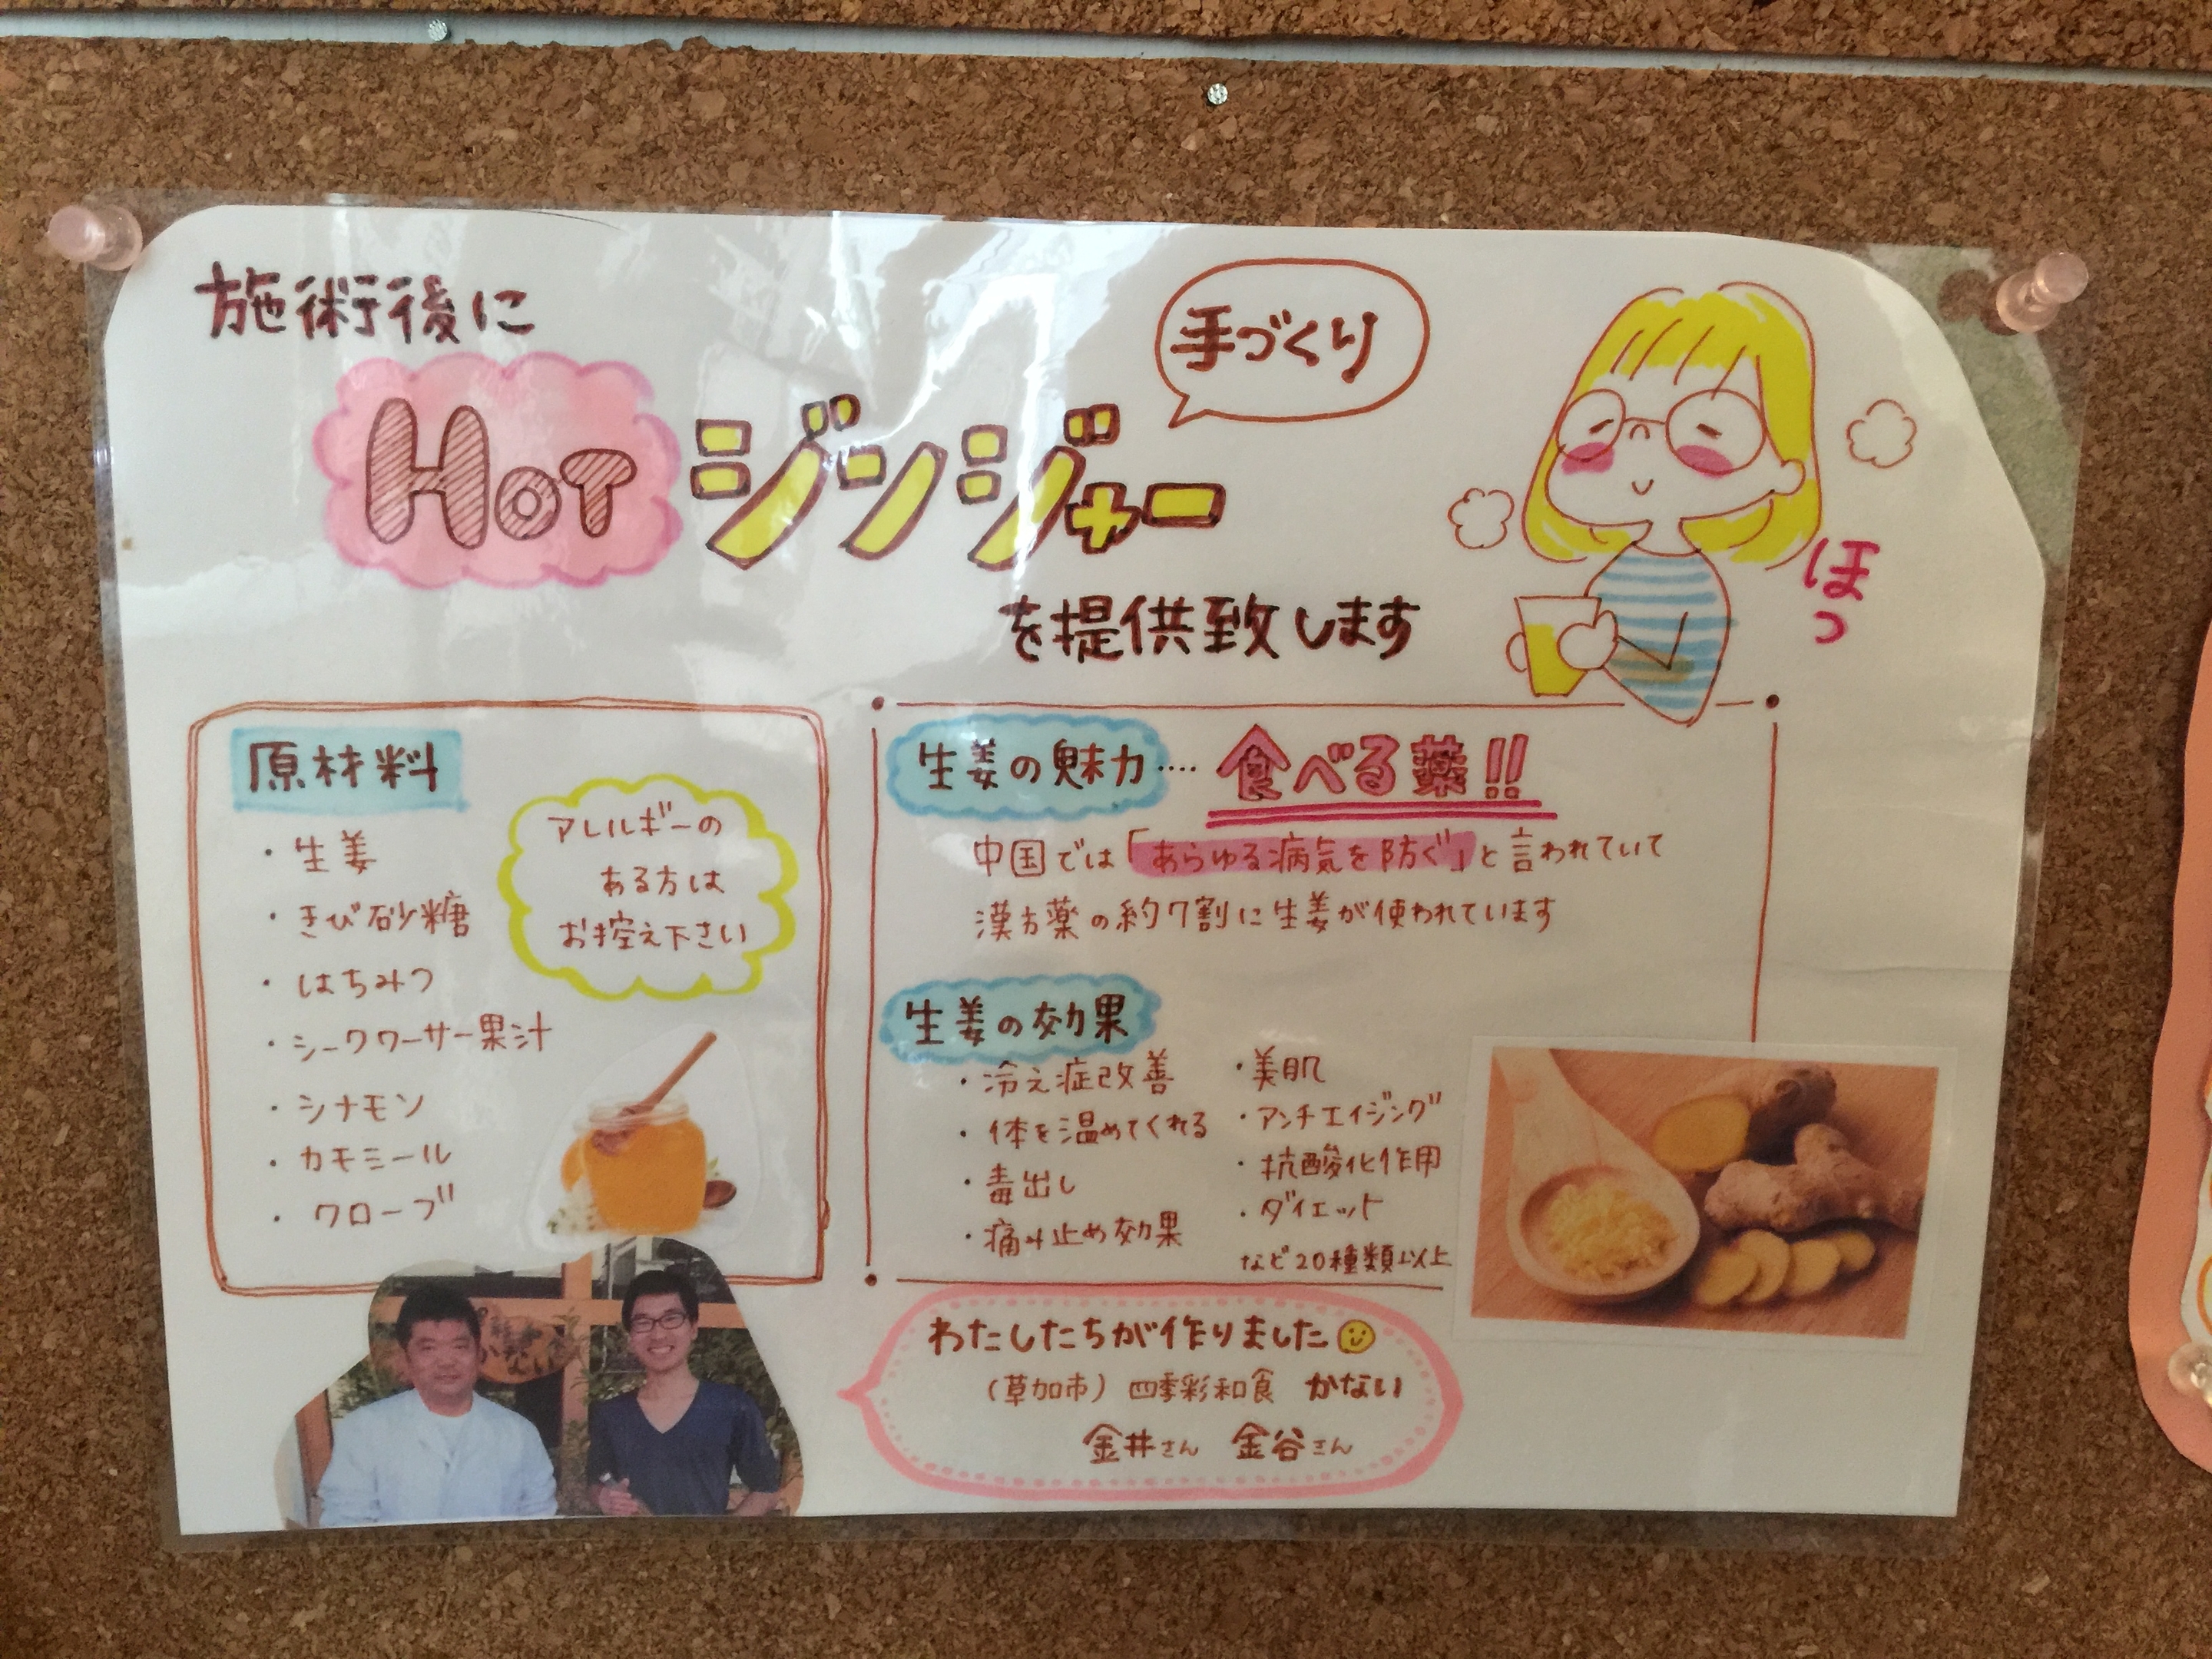 施術後に
手づくり
HOT ジンジャー
を提供致します
ほっ
原材料
・生姜
・きび砂糖
・はちみつ
・シークワーサー果汁
・シナモン
・カモミール
・クローブ
アレルギーの
ある方は
お控え下さい
生姜の魅力‥‥ 食べる薬!!
中国では「あらゆる病気を防ぐ」と言われていて
漢方薬の約7割に生姜が使われています
生姜の効果
・冷え症改善
・体を温めてくれる
・毒出し
・痛み止め効果
・美肌
・アンチエイジング
・抗酸化作用
・ダイエット
など20種類以上
わたしたちが作りました
(草加市) 四季彩和食 かない
金井さん 金谷さん